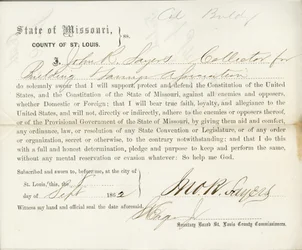 State of Missouri,
COUNTY OF ST. LOUIS.
ss.
I, John R. Sayers Collector for
Building
do solemnly swear that I will support, protect and defend the Constitution of the United
States, and the Constitution of the State of Missouri, against all enemies and opposers,
whether Domestic or Foreign; that I will bear true faith, loyalty, and allegiance to the
United States, and will not, directly or indirectly, adhere to the enemies or opposers thereof,
or of the Provisional Government of the State of Missouri, by giving them aid and comfort,
any ordinance, law, or resolution of any State Convention or Legislature, or of any order
or organization, secret or otherwise, to the contrary notwithstanding; and that I do this
with a full and honest determination, pledge and purpose to keep and perform the same,
without any mental reservation or evasion whatever: So help me God.
Subscribed and sworn to, before me, at the city of
St. Louis, this
day of Sept 1862
Jno R. Sayers
Witness my hand and official seal the date aforesaid.
Secretary Board St. Louis County Commissioners.